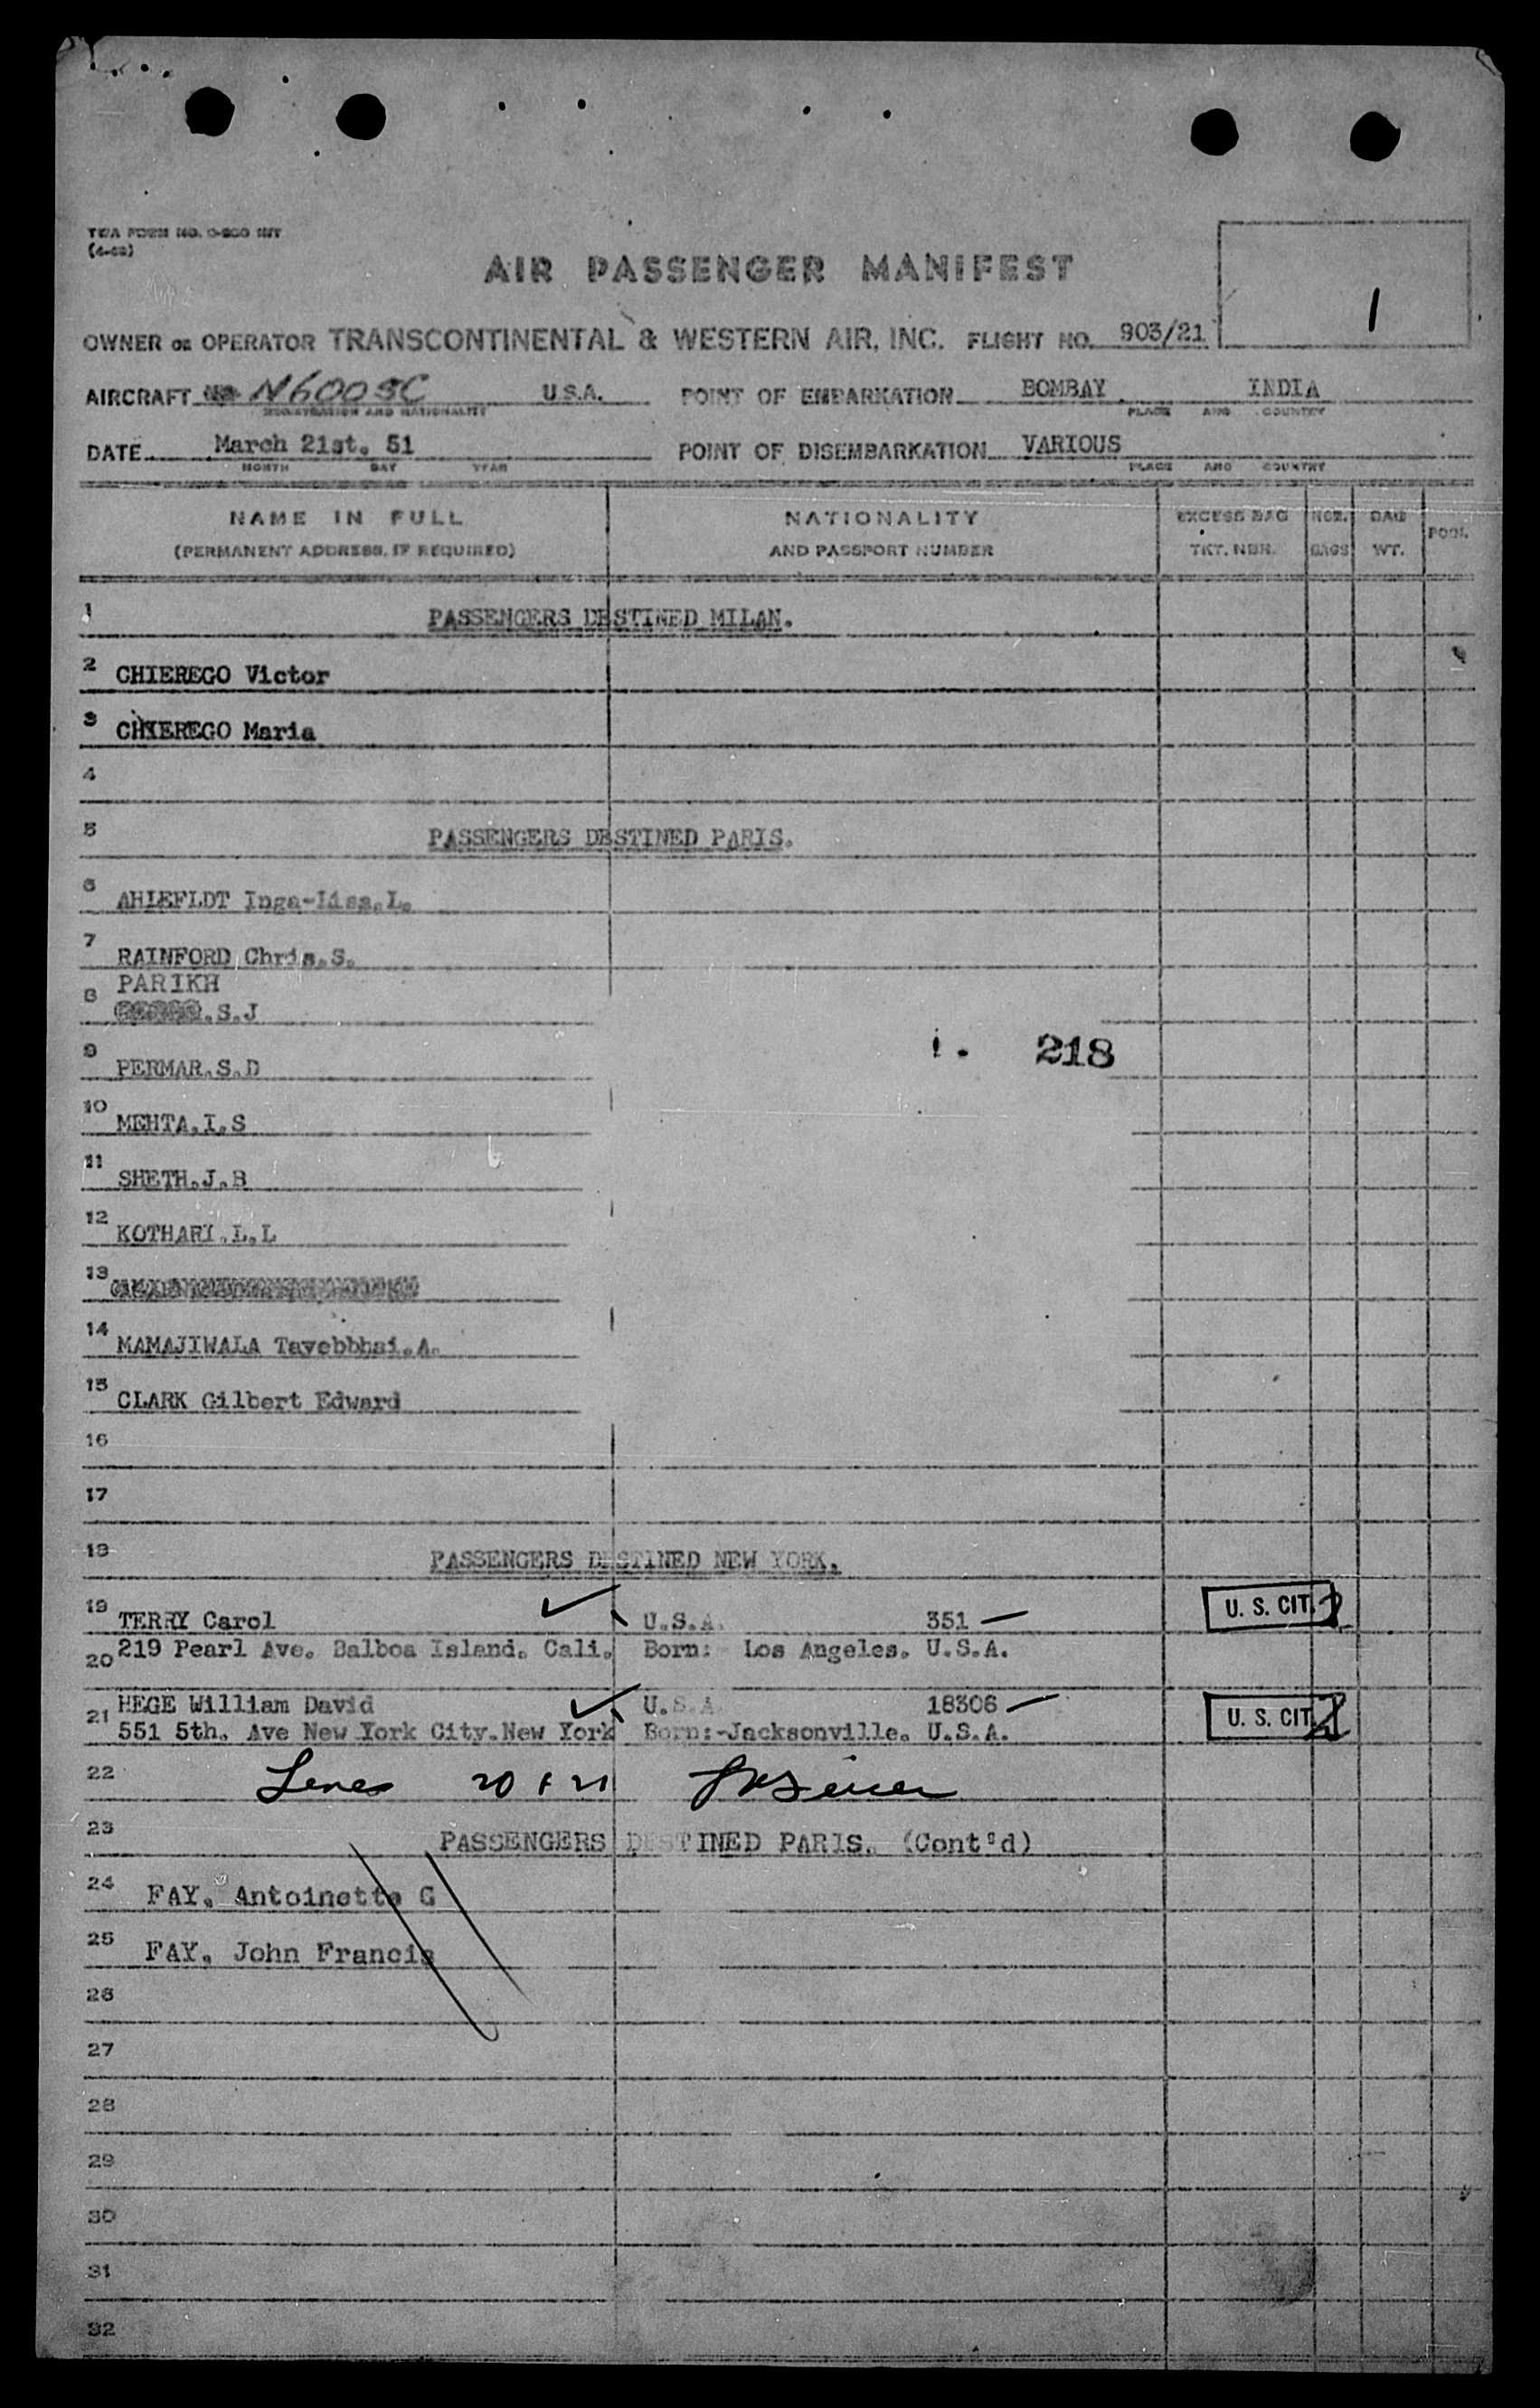 TWA FORM NO. O-800 INT
AIR PASSENGER MANIFEST
1
OWNER OR OPERATOR TRANSCONTINENTAL & WESTERN AIR, INC. FLIGHT NO. 903/21
AIRCRAFT NO. U.S.A. POINT OF EMBARKATION BOMBAY INDIA
REGISTRATION AND NATIONALITY PLACE AND COUNTRY
DATE March 21st. 51 POINT OF DISEMBARKATION VARIOUS
MONTH DAY YEAR PLACE AND COUNTRY
NAME IN FULL NATIONALITY EXCESS BAG NBR. BAG POOL
(PERMANENT ADDRESS, IF REQUIRED) AND PASSPORT NUMBER TKT. NBR. BAGS WT.
1 PASSENGERS DESTINED MILAN.
2 CHIEREGO Victor
3 CHIEREGO Maria
4
5 PASSENGERS DESTINED PARIS.
6 AHIEFLDT Inga-Liss.L.
7 RAINFORD Chris.S.
PARIKH
8 .S.J
218
9 PERMAR.S.D
10 MEHTA.I.S
11 SHETH.J.B
12 KOTHARI.L.L
13
14 MAMAJIWALA Tavebbhai.A.
15 CLARK Gilbert Edward
16
17
18 PASSENGERS DESTINED NEW YORK.
19 TERRY Carol U.S.A. 351 — U. S. CIT.
20 219 Pearl Ave. Balboa Island. Cali. Born: Los Angeles. U.S.A.
HEGE William David U.S.A 18306 —
21 551 5th. Ave New York City.New York Born:-Jacksonville. U.S.A. U. S. CIT.
22 20 & 21
23 PASSENGERS DESTINED PARIS. (Cont'd)
24 FAY, Antoinette G
25 FAY, John Francis
26
27
28
29
30
31
32